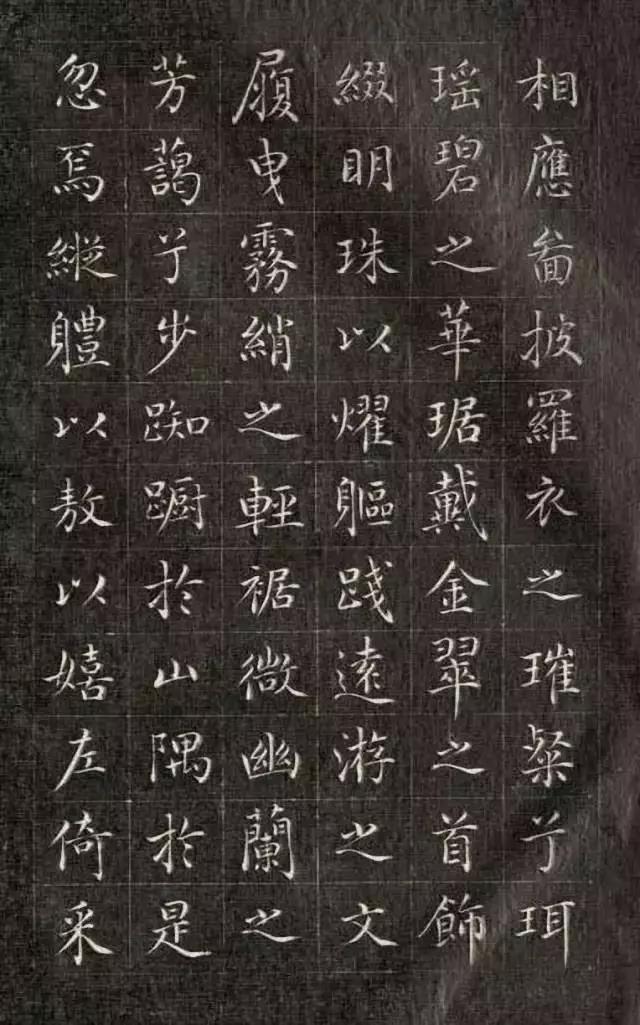 相應啚披羅衣之璀粲兮珥
瑶碧之華琚戴金翠之首飾
綴明珠以燿軀踐遠游之文
履曳霧綃之輕裾微幽蘭之
芳藹兮步踟蹰於山隅於是
忽焉縱軆以敖以嬉左倚采